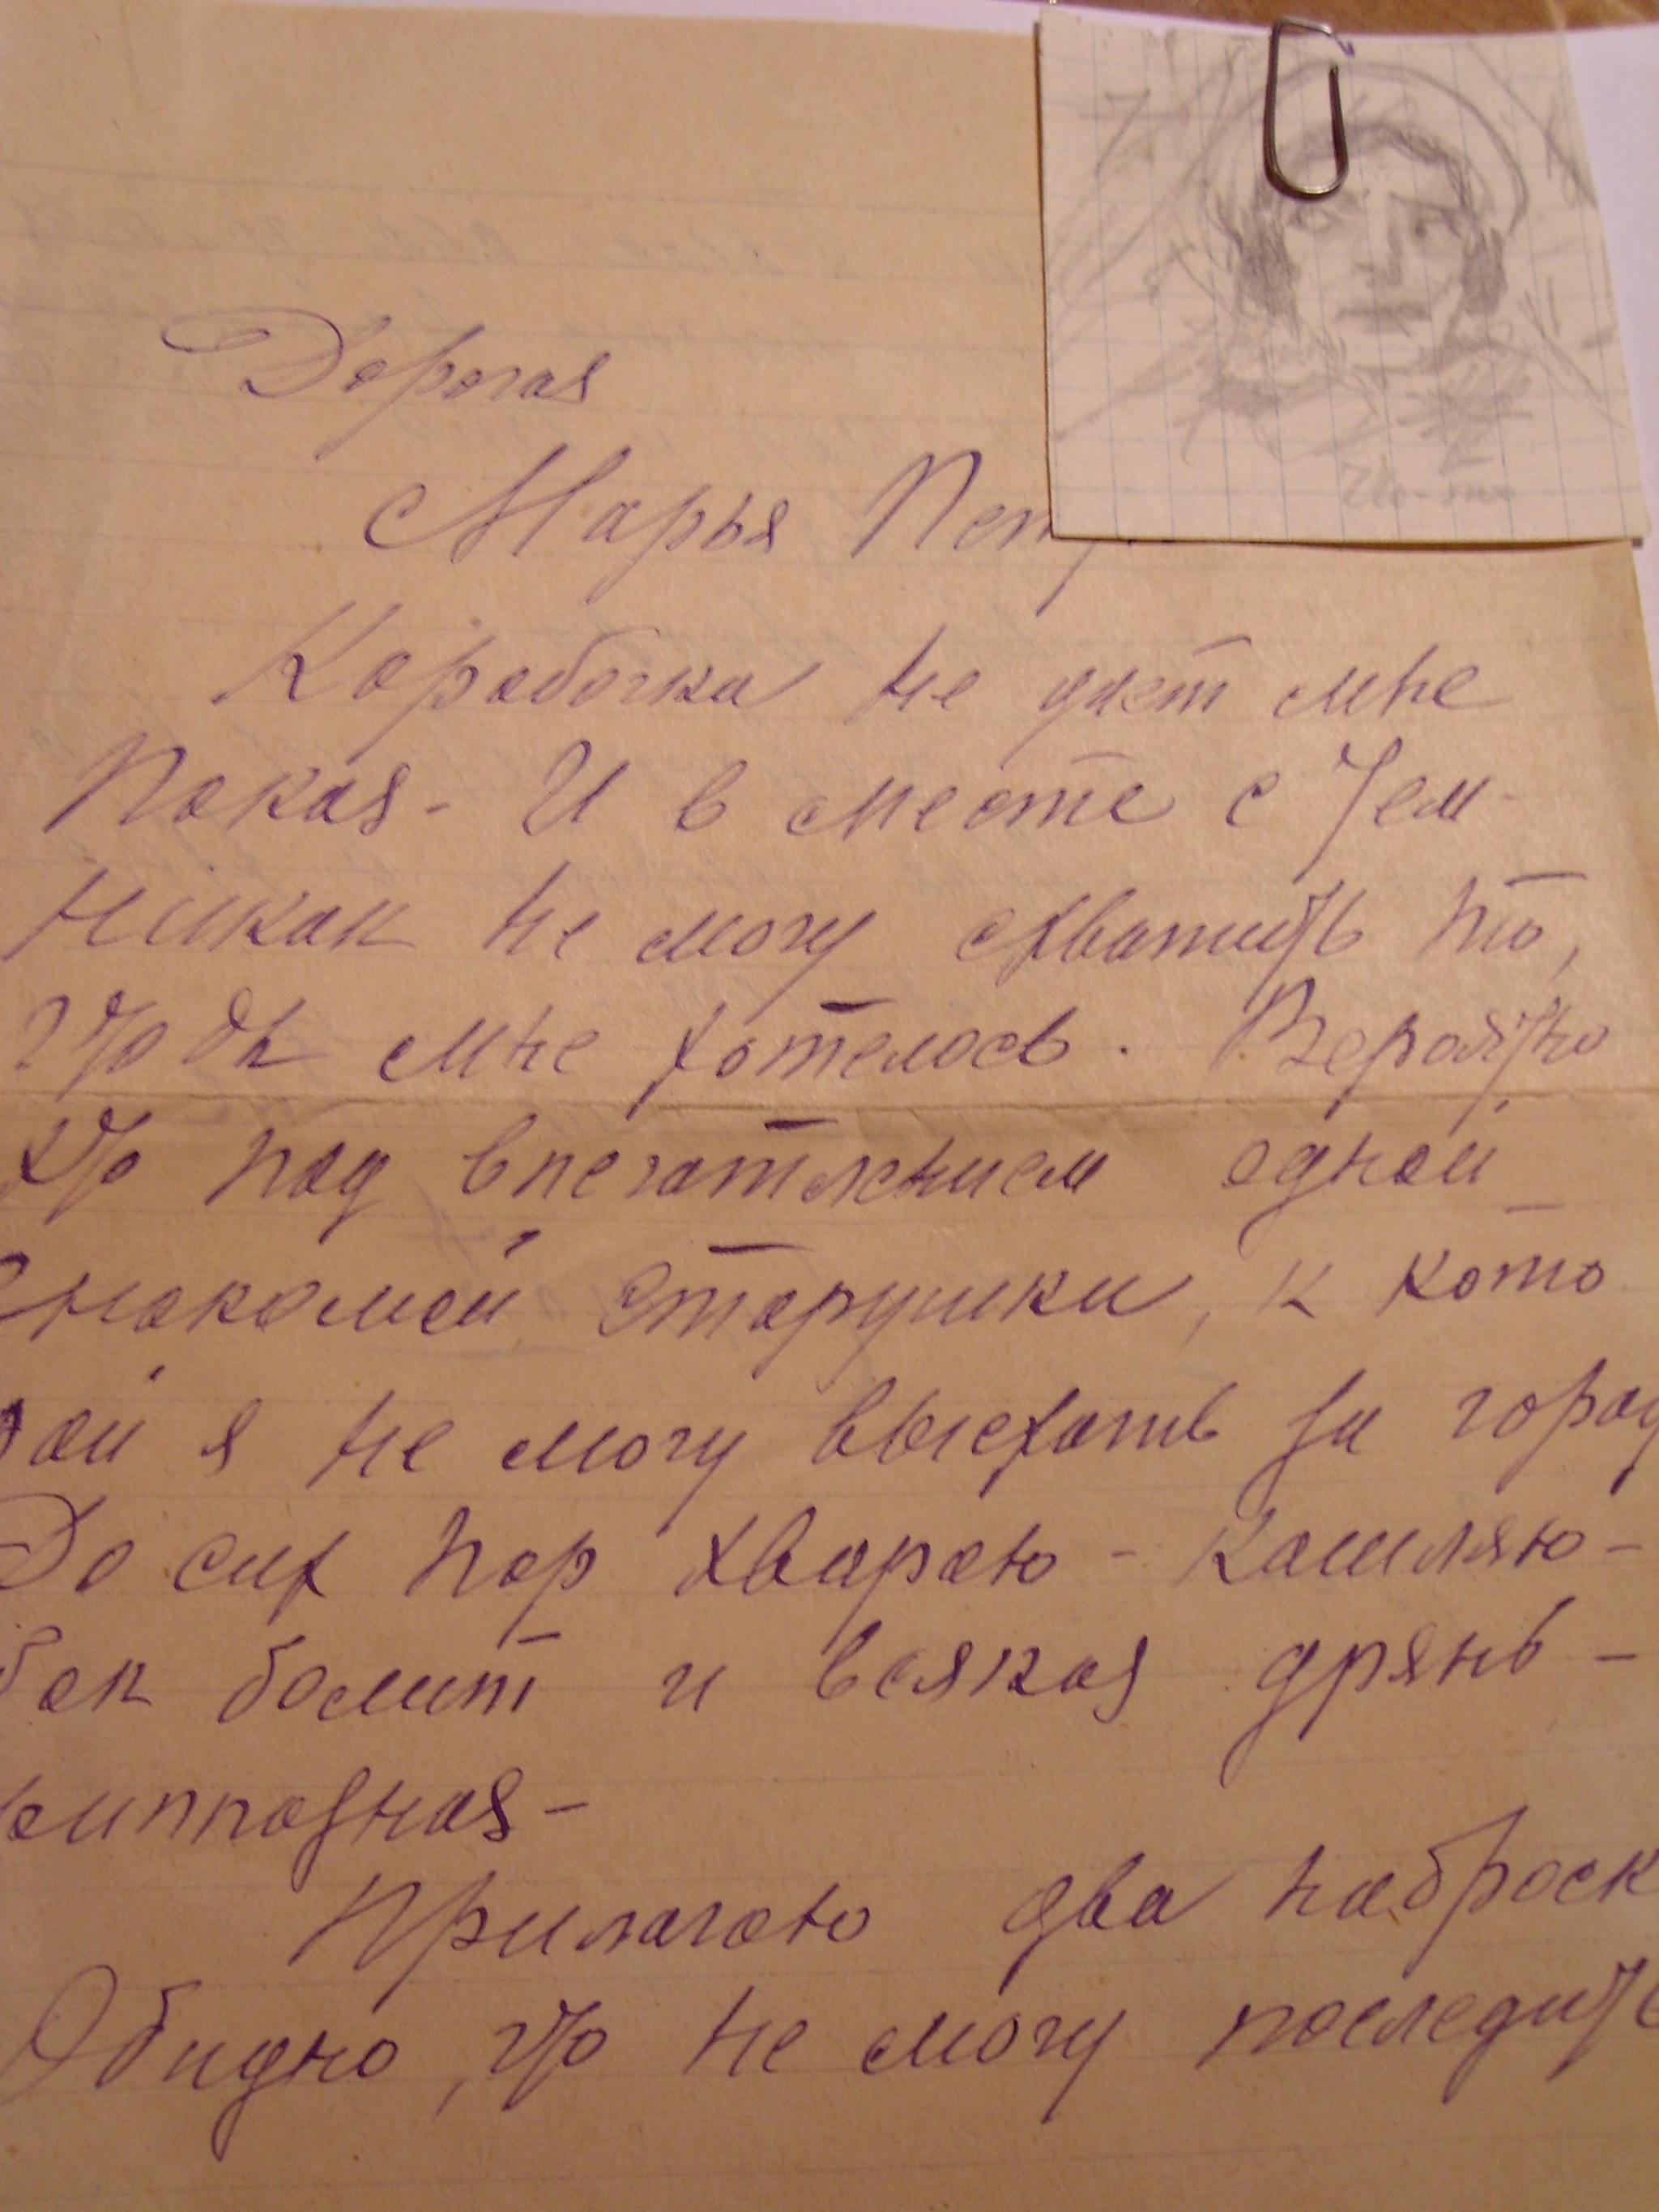 Что-то
Дорогая
Марья Петр
Коробочка не дает мне
покоя - И в месте с тем -
никак не могу схватить то,
что бы мне хотелось. Вероятно
это под впечатлением одной
знакомой старушки, к кото
рой я не могу выехать за город
До сих пор хвораю - кашляю -
бок болит и всякая дрянь -
гриппозная -
Прилагаю два наброск
Обидно, что не могу последить